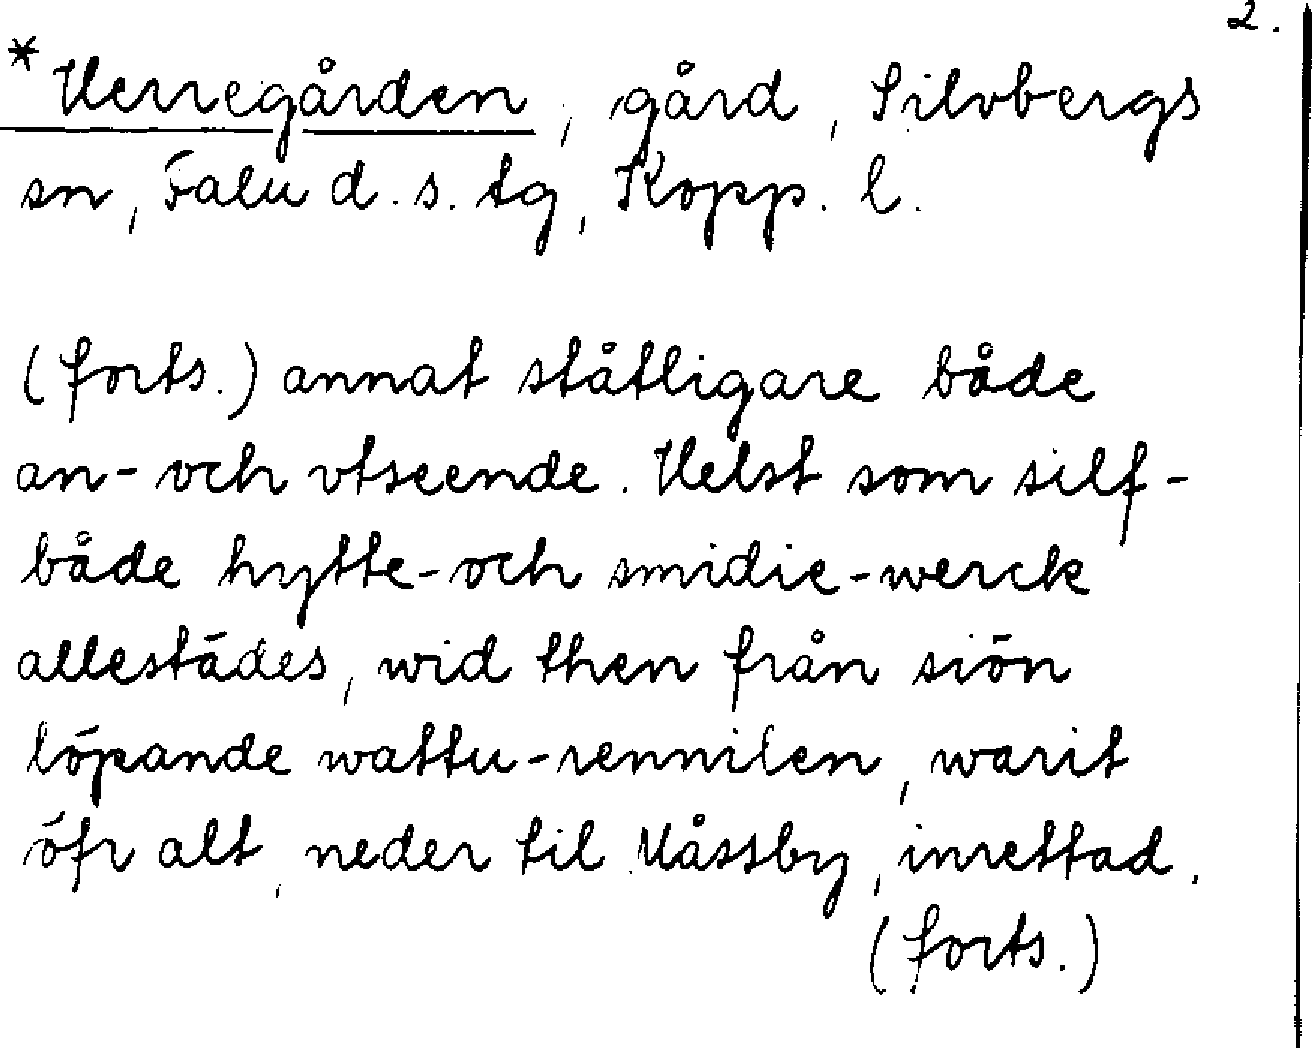 2.
*Herregården, gård, Silvbergs
sn, Falu d. s. tg, Kopp. l.
(forts.) annat ståtligare både
an- och vtseende. Helst som silf-
både hytte- och smidie-werck
allestädes, wid then från siön
löpande wattu-rennilen, warit
öfr alt, neder til Nåssby, inrettad.
(forts.)